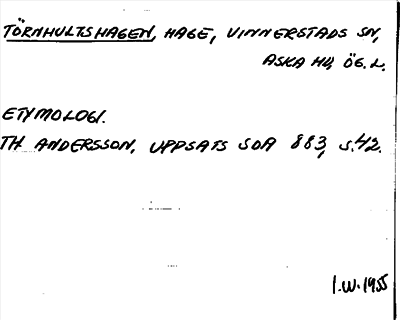 TÖRNHULTSHAGEN, HAGE, VINNERSTADS SN,
ASKA HD, ÖG. L.
ETYMOLOGI.
TH ANDERSSON, UPPSATS SOA 883, S.42.
I.W. 1955